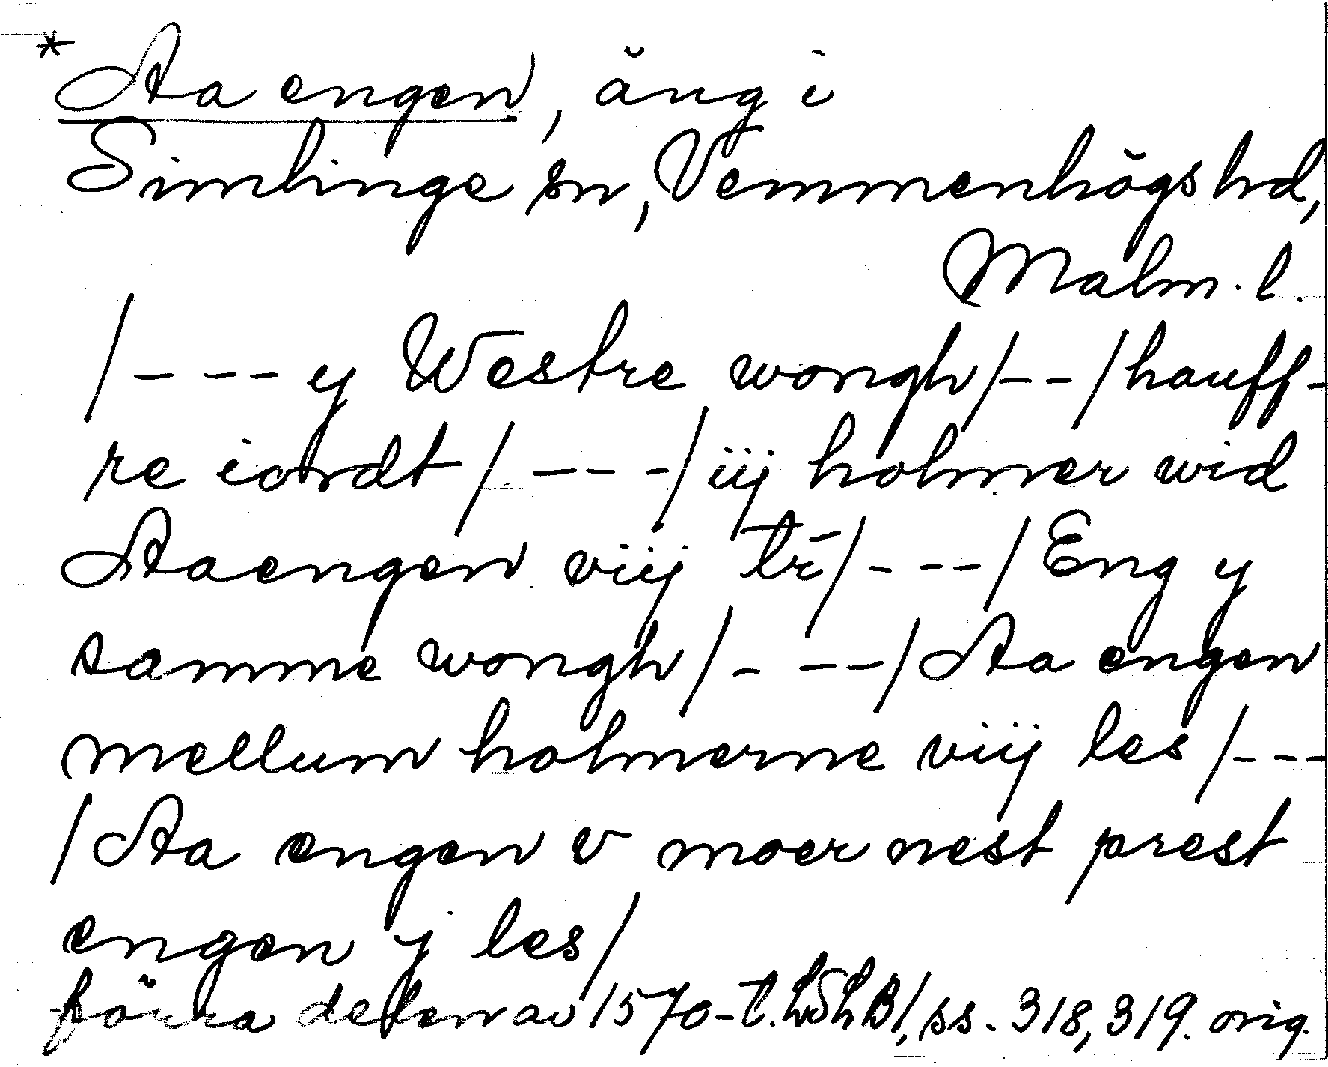 *Aa engen, äng i
Simlinge sn, Vemmenhögs hd,
Malm. l.
/--- y Westre wongh/--/hauff-
re iordt/---/iij holmer wid
Aaengen viij tr/---/Eng y
samme wongh/---/Aa engen
mellum holmerne viij les/---
/Aa engen v moer nest prest
engen j les/
förra delen av 1570-t. LSLB/, ss. 318, 319. orig.